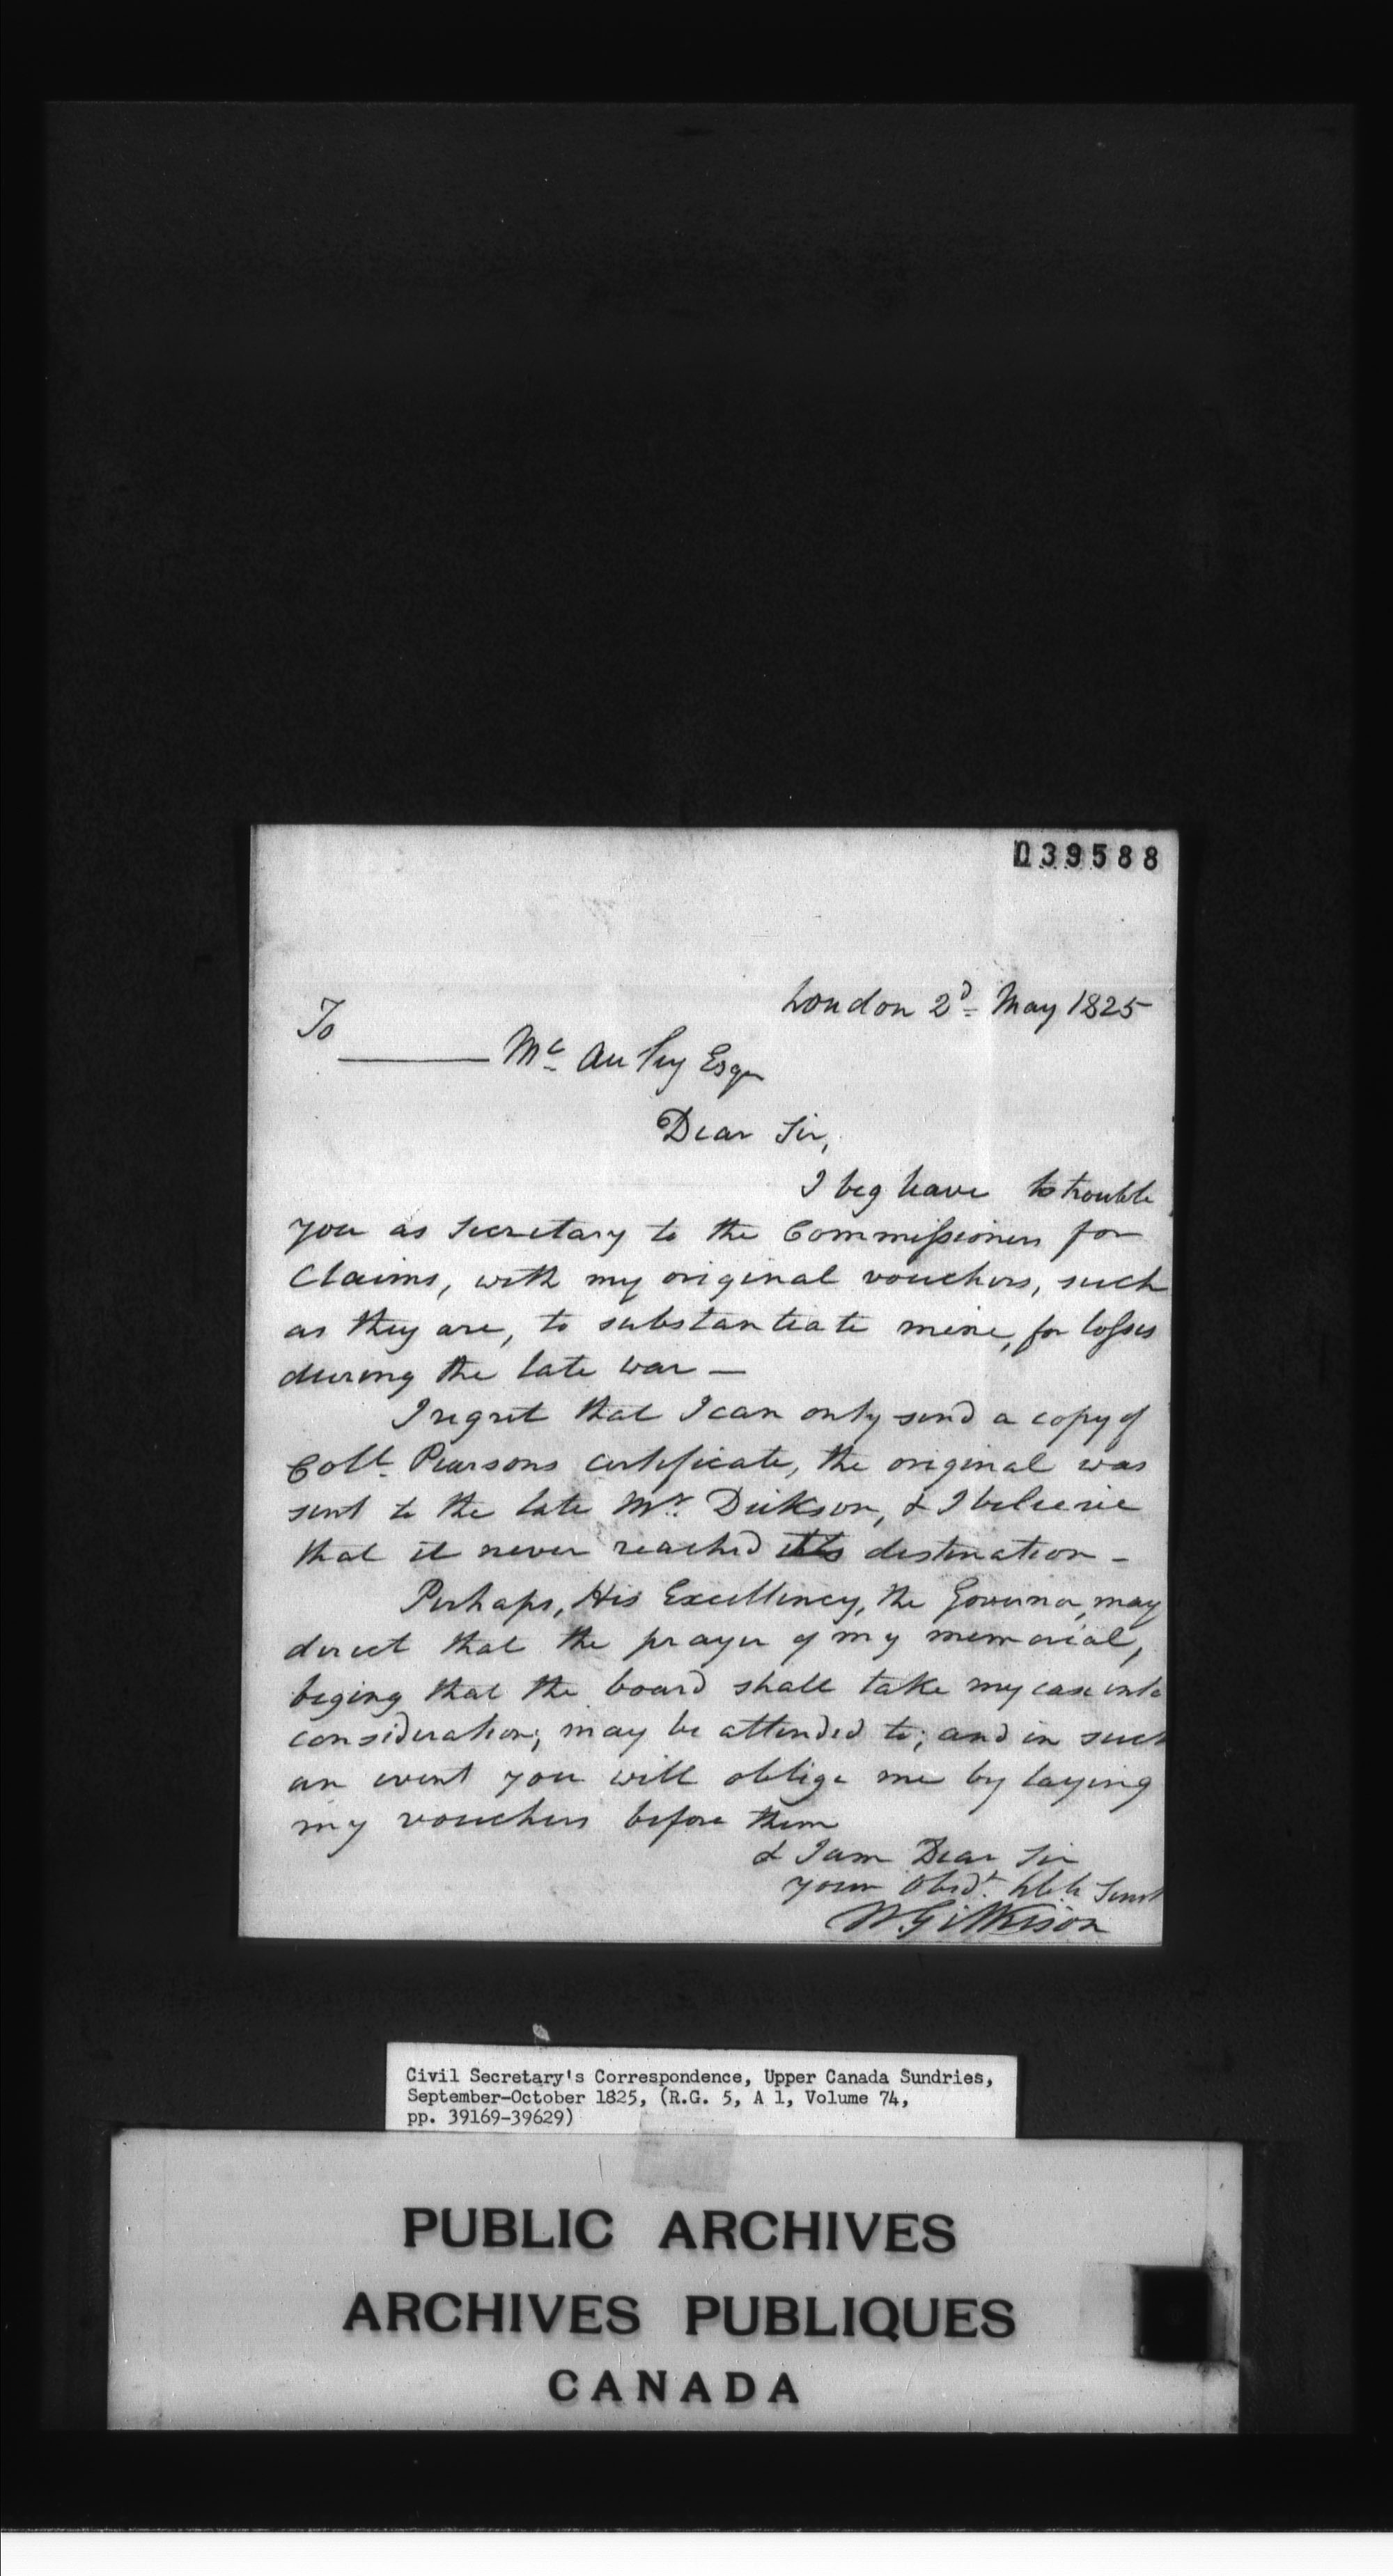 039588
London 2d May 1825
To
Mc Auley Esqr
Dear Sir,
I beg leave to trouble
you as Secretary to the Commissioners for
Claims, with my original vouchers, such
as they are, to substantiate mine, for losses
during the late war —
I regret that I can only send a copy of
Coll. Pearsons certificate, the original was
sent to the late Mr. Dickson, & I believe
that it never reached its destination -
Perhaps, His Excellency, the Governor, may
direct that the prayer of my memorial,
beging that the board shall take my case into
consideration; may be attended to; and in such
an event you will oblige me by laying
my vouchers before them
& I am Dear Sir
your Obedt. hble Servt
W. Gilkison
Civil Secretary's Correspondence, Upper Canada Sundries,
September-October 1825, (R.G. 5, A 1, Volume 74,
pp. 39169-39629)
PUBLIC ARCHIVES
ARCHIVES PUBLIQUES
CANADA